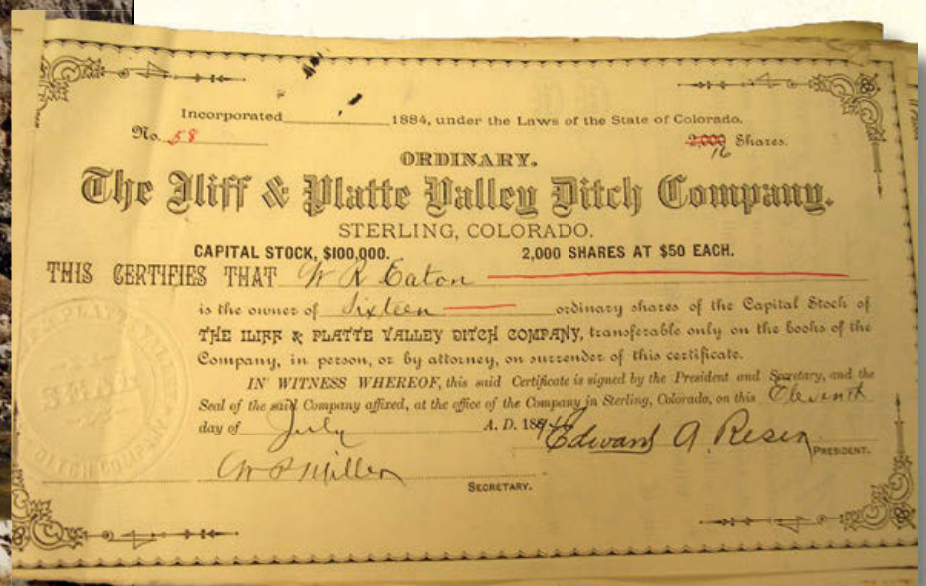 Incorporated 1884, under the Laws of the State of Colorado.
No. 58 2,000 Shares.
16
ORDINARY.
The Iliff & Platte Valley Ditch Company.
STERLING, COLORADO.
CAPITAL STOCK, $100,000. 2,000 SHARES AT $50 EACH.
THIS CERTIFIES THAT W R Eaton
is the owner of Sixteen ordinary shares of the Capital Stock of
THE ILIFF & PLATTE VALLEY DITCH COMPANY, transferable only on the books of the
Company, in person, or by attorney, on surrender of this certificate.
IN WITNESS WHEREOF, this said Certificate is signed by the President and Secretary, and the
Seal of the said Company affixed, at the office of the Company in Sterling, Colorado, on this Eleventh
day of July A. D. 189
Edward A. PRESIDENT.
W P Miller SECRETARY.
SEAL
DITCH COMPANY